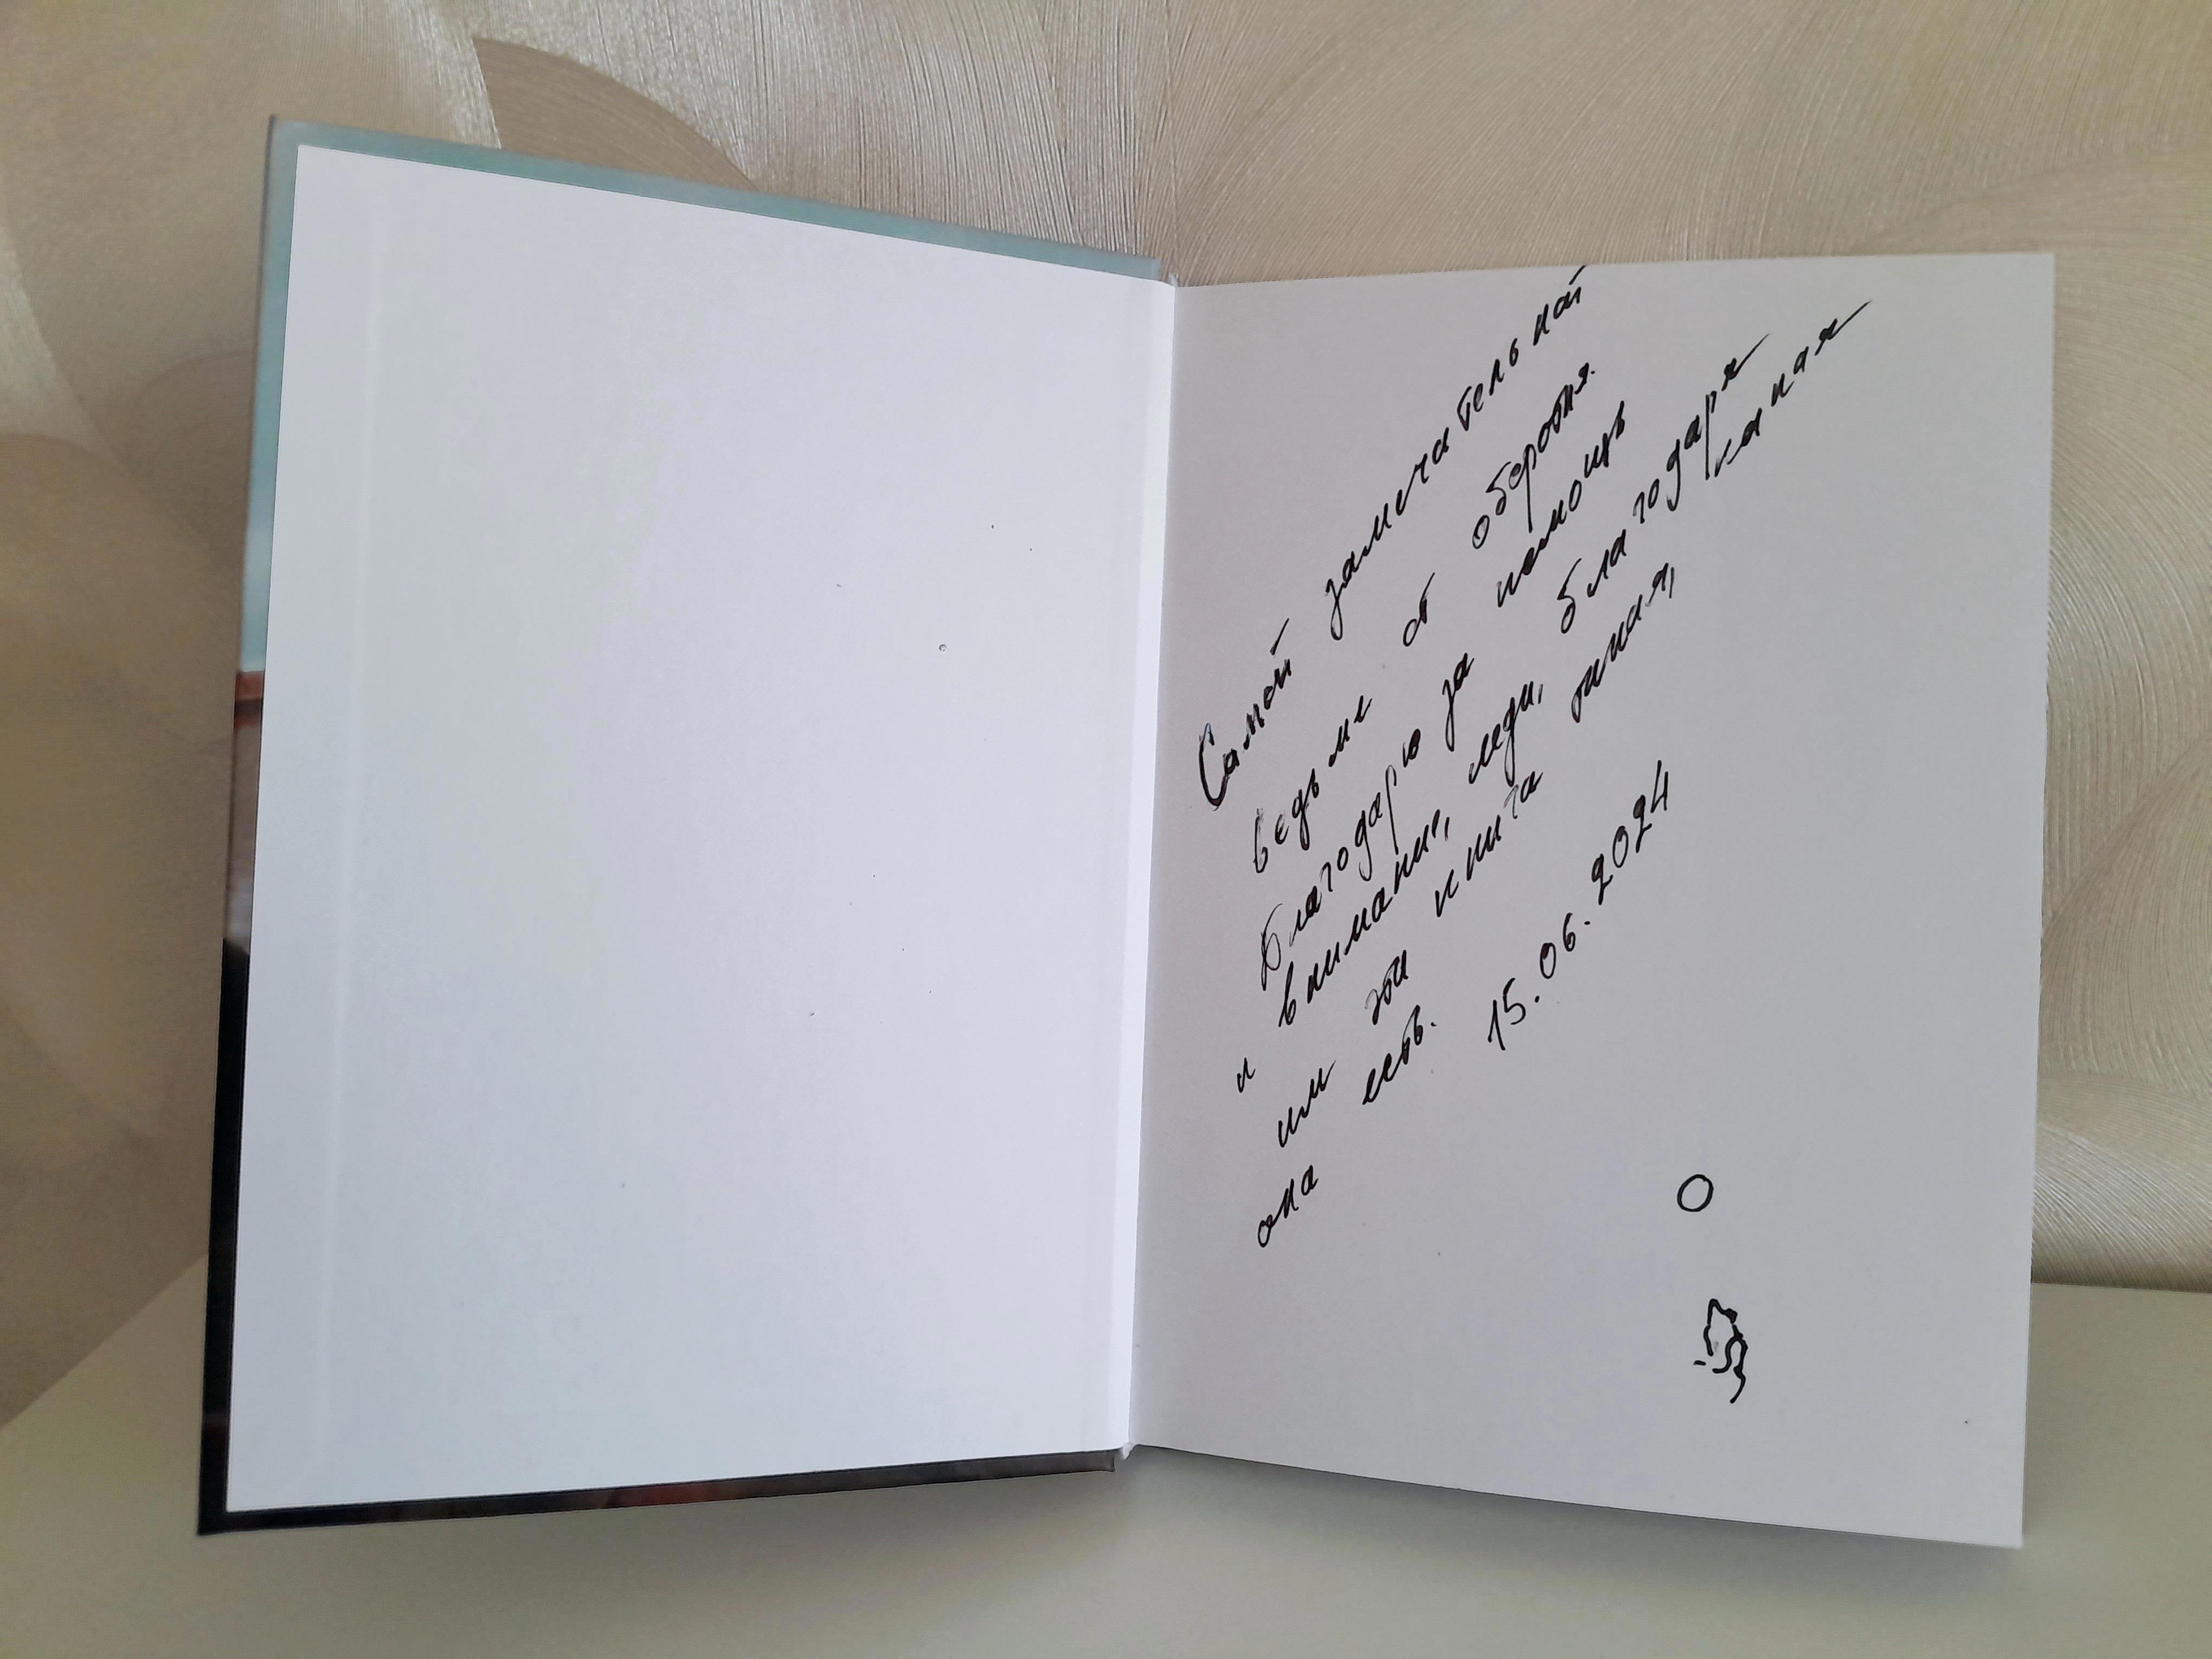 Самой замечательной
ведьме от оборотня.
Благодарю за помощь
и внимание, леди, благодаря
им эта книга такая, какая
она есть. 15.06.2024